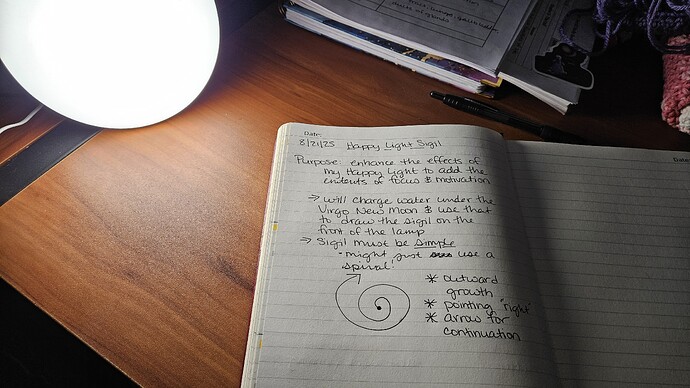 Date:
8/21/25 Happy Light Sigil
Purpose: enhance the effects of
my Happy Light to add the
intents of focus & motivation
→ will charge water under the
Virgo New Moon & use that
to draw the sigil on the
front of the lamp
→ Sigil must be simple
- might just use a
spiral!
* outward
growth
* pointing "right"
* arrow for
continuation
Date: